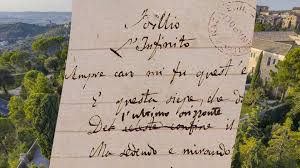 Idillio
L'Infinito
Sempre caro mi fu quest' e
E questa siepe, che d
l'ultimo orizzonte
Del celeste confine il
Ma sedendo e mirando